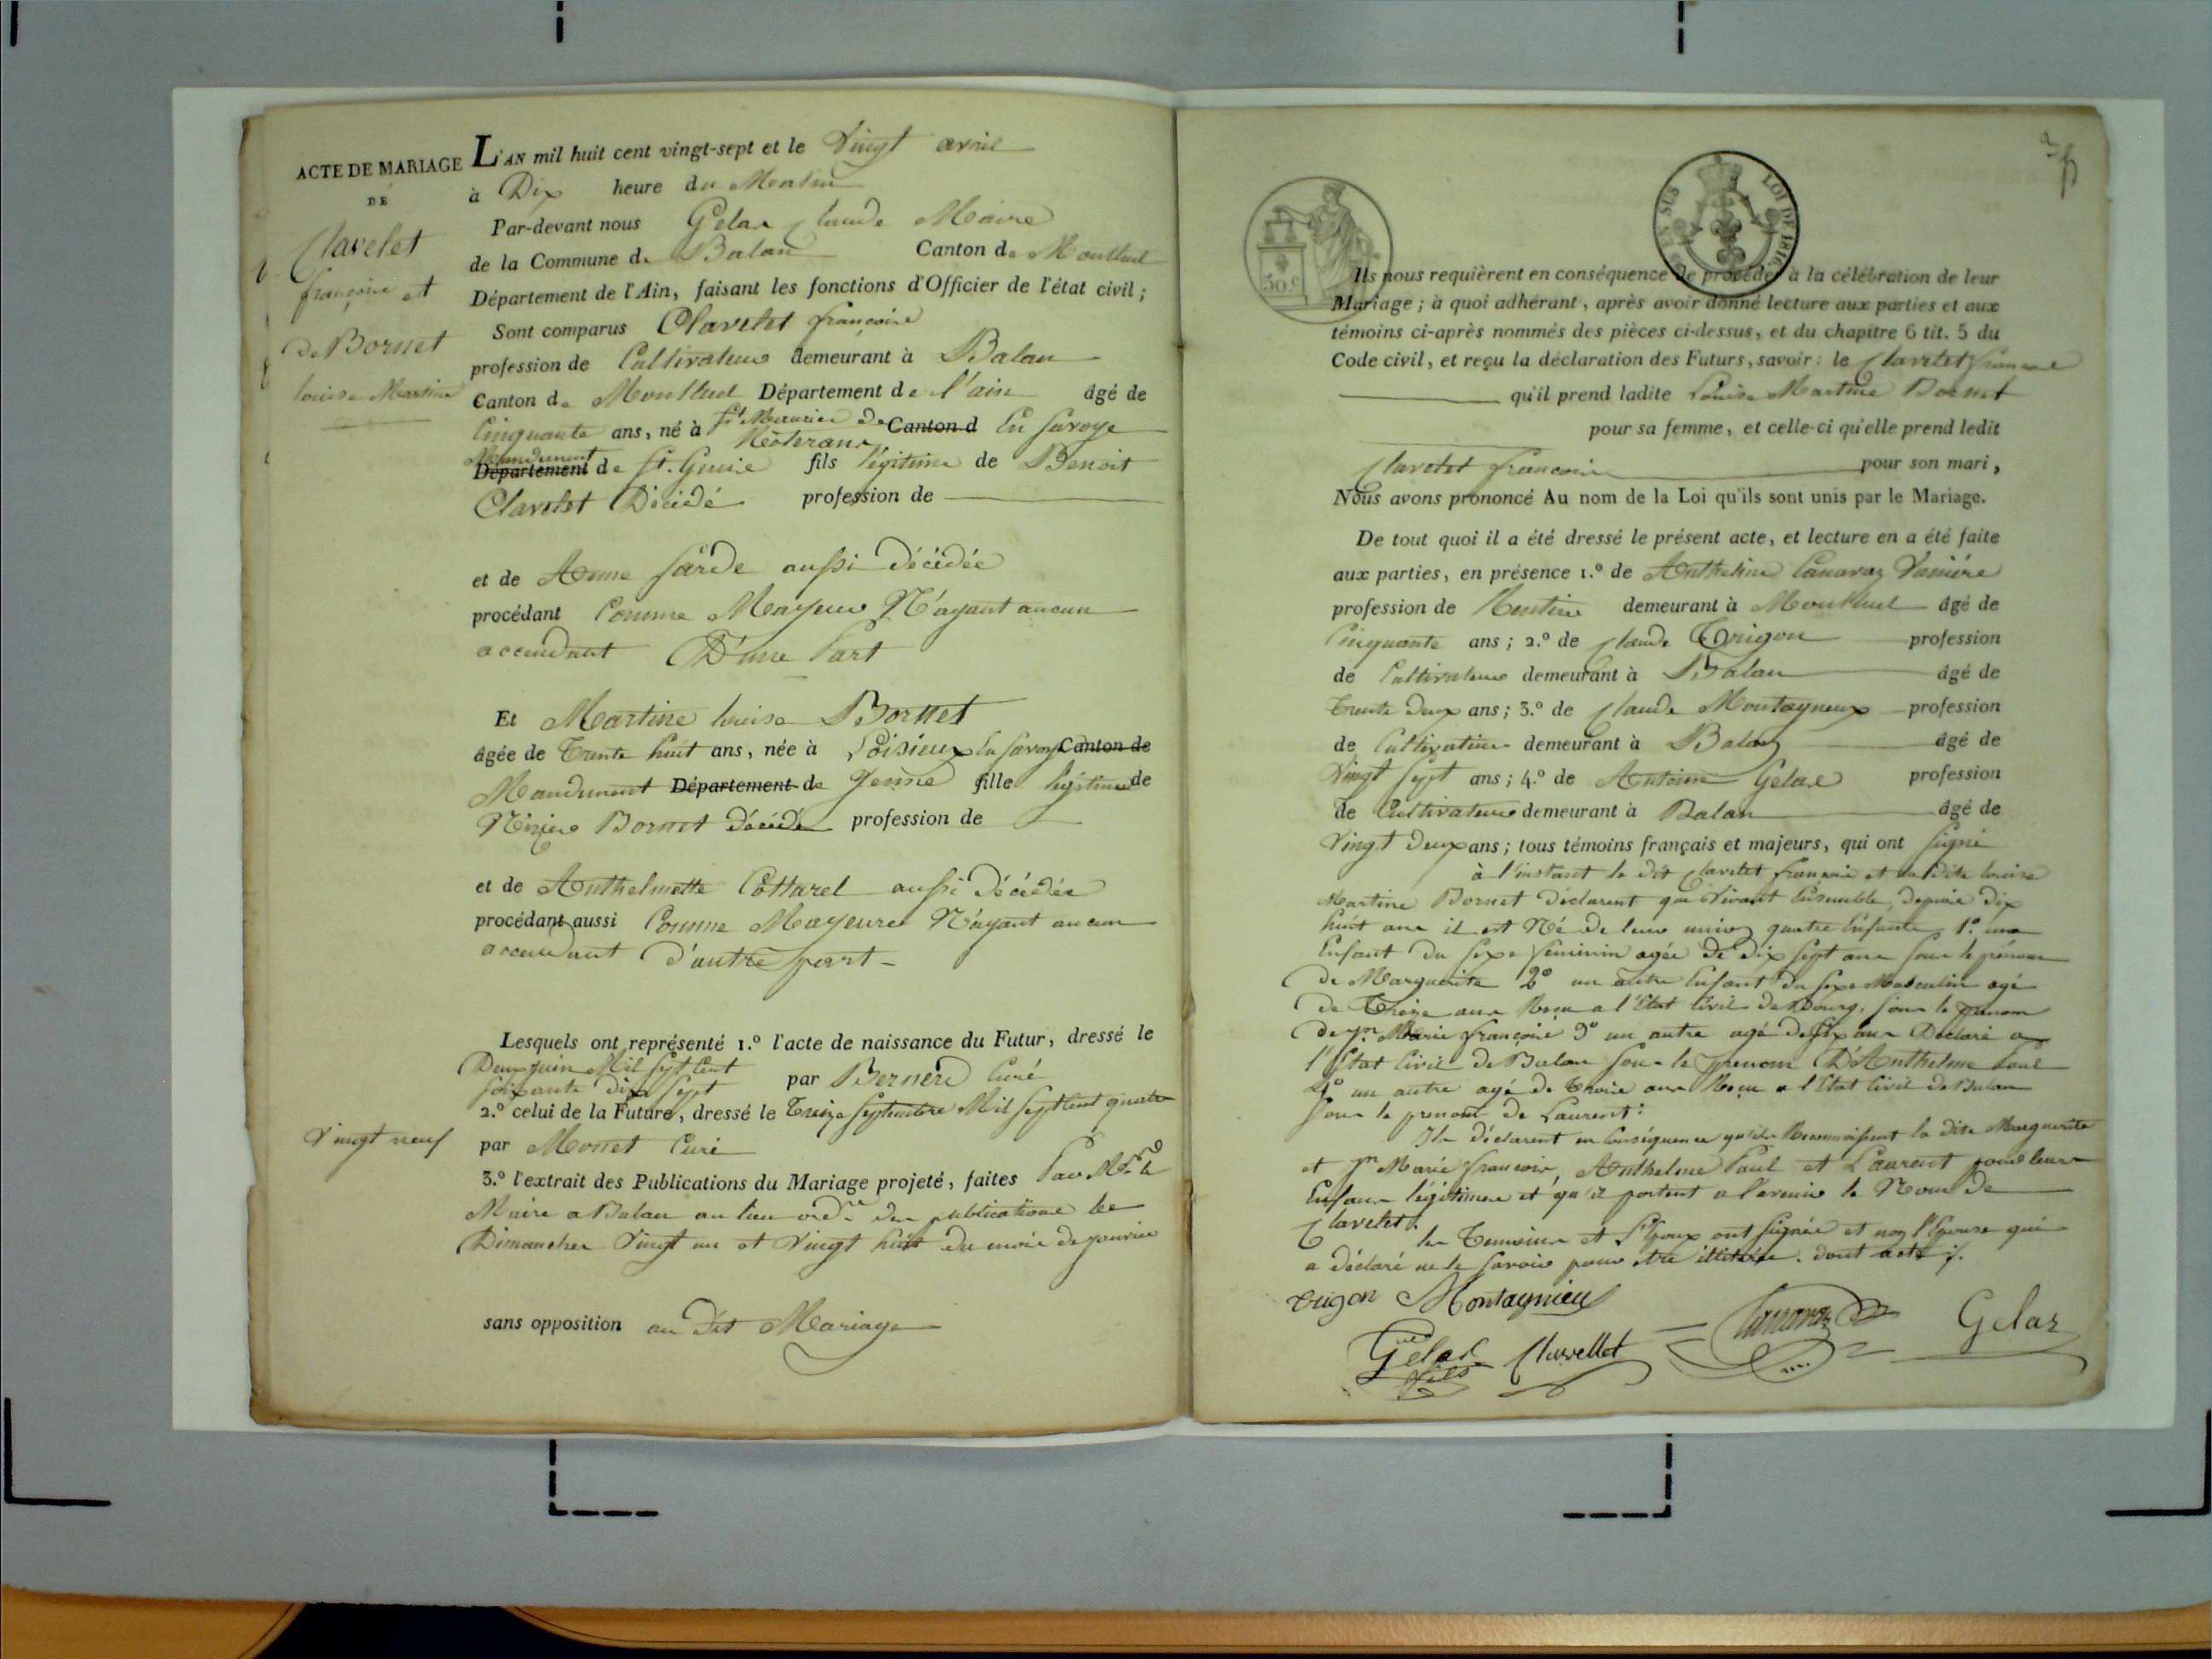 ACTE DE MARIAGE
DE
Clavelet
françois et
de Bornet
louise Martine
L'AN mil huit cent vingt-sept et le Vingt avril
à Dix heure du Matin
Par-devant nous Gelas Claude Maire
de la Commune de Balan Canton de Montluel
Département de l'Ain, faisant les fonctions d'Officier de l'état civil;
Sont comparus Clavelet françois
profession de Cultivateur demeurant à Balan
Canton de Montluel Département de l'ain âgé de
Cinquante ans, né à St Maurice de Canton d En Savoye
Mandement Département de St. Genie fils légitime de Benoit
Clavelet Décédé profession de
et de Anne Sarde aussi décédée
procédant Comme Mayeur N'ayant aucun
accendant D'une Part
Et Martine louise Bornet
âgée de Trente huit ans, née à Loisieux En Savoye Canton de
Mandement Département de Yenne fille légitime de
Bornet décédé profession de
et de Anthelmette Cottarel aussi Décédée
procédant aussi Comme Mayeure N'ayant aucun
accendant d'autre part
Lesquels ont représenté 1.º l'acte de naissance du Futur, dressé le
Deux juin Mil Sept Cent
soixante Dix Sept par Berner Curé
2.º celui de la Future, dressé le Treize Septembre Mil Sept Cent quatre
Vingt neuf
par Monet Curé
3.º l'extrait des Publications du Mariage projeté, faites Par Mr le
Maire a Balan au lieu ordre des publications les
Dimanches Vingt un et Vingt huit du mois de janvier
sans opposition au dit Mariage
30 c.
EN SUS LOI DE 1816.
Ils nous requièrent en conséquence de procéder à la célébration de leur
Mariage; à quoi adhérant, après avoir donné lecture aux parties et aux
témoins ci-après nommés des pièces ci-dessus, et du chapitre 6 tit. 5 du
Code civil, et reçu la déclaration des Futurs, savoir: le Clavelet françois
qu'il prend ladite Louise Martine Bornet
pour sa femme, et celle-ci qu'elle prend ledit
Clavelet françois pour son mari,
Nous avons prononcé Au nom de la Loi qu'ils sont unis par le Mariage.
De tout quoi il a été dressé le présent acte, et lecture en a été faite
aux parties, en présence 1.º de Anthelme Canavaz
profession de Rentier demeurant à Montluel âgé de
Cinquante ans; 2.º de Claude Trigon profession
de Cultivateur demeurant à Balan âgé de
Trente deux ans; 3.º de Claude Montagneux profession
de Cultivateur demeurant à Balan âgé de
Vingt Sept ans; 4.º de Antoine Gelas profession
de Cultivateur demeurant à Balan âgé de
Vingt Deux ans; tous témoins français et majeurs, qui ont signé
à l'instant le dit Clavelet françois et la dite louise
Martine Bornet Déclarent que Vivant Ensemble depuis Dix
huit ans il est Né de leur union quatre Enfants 1.º une
Enfant du sexe féminin agée de Dix Sept ans sous le prénom
de Marguerite 2º un autre Enfant du sexe Masculin agé
de Treize ans Reçu a l'Etat Civil de Bourg, sous le prenom
de Jn Marie françois 3º un autre agé de six ans Déclaré a
l'Etat Civil de Balan sous le prenom D'Anthelme Paul
4º un autre agé de Trois ans Reçu a l'Etat Civil de Balan
sous le prenom de Laurent.
Ils déclarent en Conséquence qu'ils Reconnoissent la dite Marguerite
et Jn Marie françois, Anthelme Paul et Laurent pour leurs
Enfans légitimes et qu'il portent a l'avenir le Nom de
Clavelet.
les Temoins et l'Epoux ont signée et non l'Epouse qui
a déclaré ne le savoir pour etre illitérée. dont acte
trigon Montagnieu
Gelas fils Clavellet Canavaz Gelas